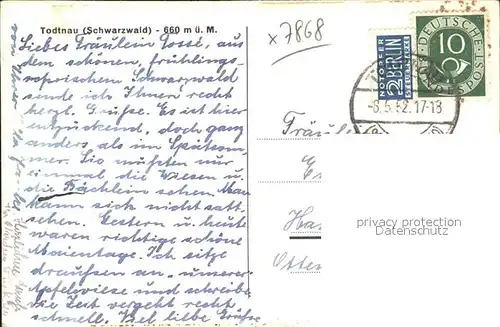 Todtnau (Schwarzwald) - 660 m ü. M.
x 7868
Liebes Fräulein Gosse, aus
dem schönen, frühlings-
frischem Schwarzwald
sende ich Ihnen recht
herzl. Grüße. Es ist hier
entzückend, doch ganz
anders als im Spätsom-
mer. Sie müßten nur
einmal die Wiesen u.
die Bächlein sehen. Man
kann sich nicht satt
sehen. Gestern u. heute
waren richtige schöne
Maientage. Ich sitze
draußen an "unserer
Apfelwiese und schreibe
die Zeit vergeht recht
schnell. Viel liebe Grüße
NOTOPFER
2 BERLIN
STEUERMARKE
DEUTSCHE
POST
10
-6.5.52.17-18
Fräul
Ha
privacy protection
Datenschutz